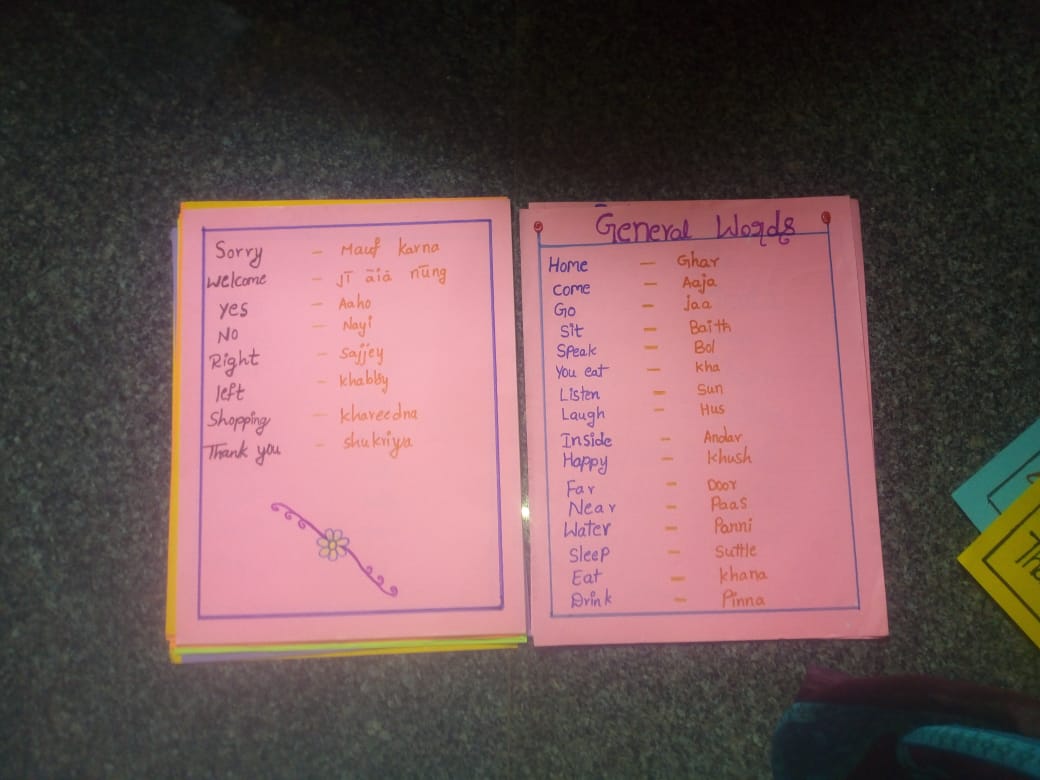 Sorry - Mauf karna
Welcome - jī āiā nūng
Yes - Aaho
No - Nayi
Right - Sajjey
left - khabby
Shopping - khareedna
Thank you - shukriya
General Words
Home - Ghar
Come - Aaja
Go - Jaa
Sit - Baith
Speak - Bol
You eat - kha
Listen - Sun
Laugh - Hus
Inside - Andar
Happy - Khush
Far - Door
Near - Paas
Water - Panni
Sleep - Suttle
Eat - khana
Drink - Pinna